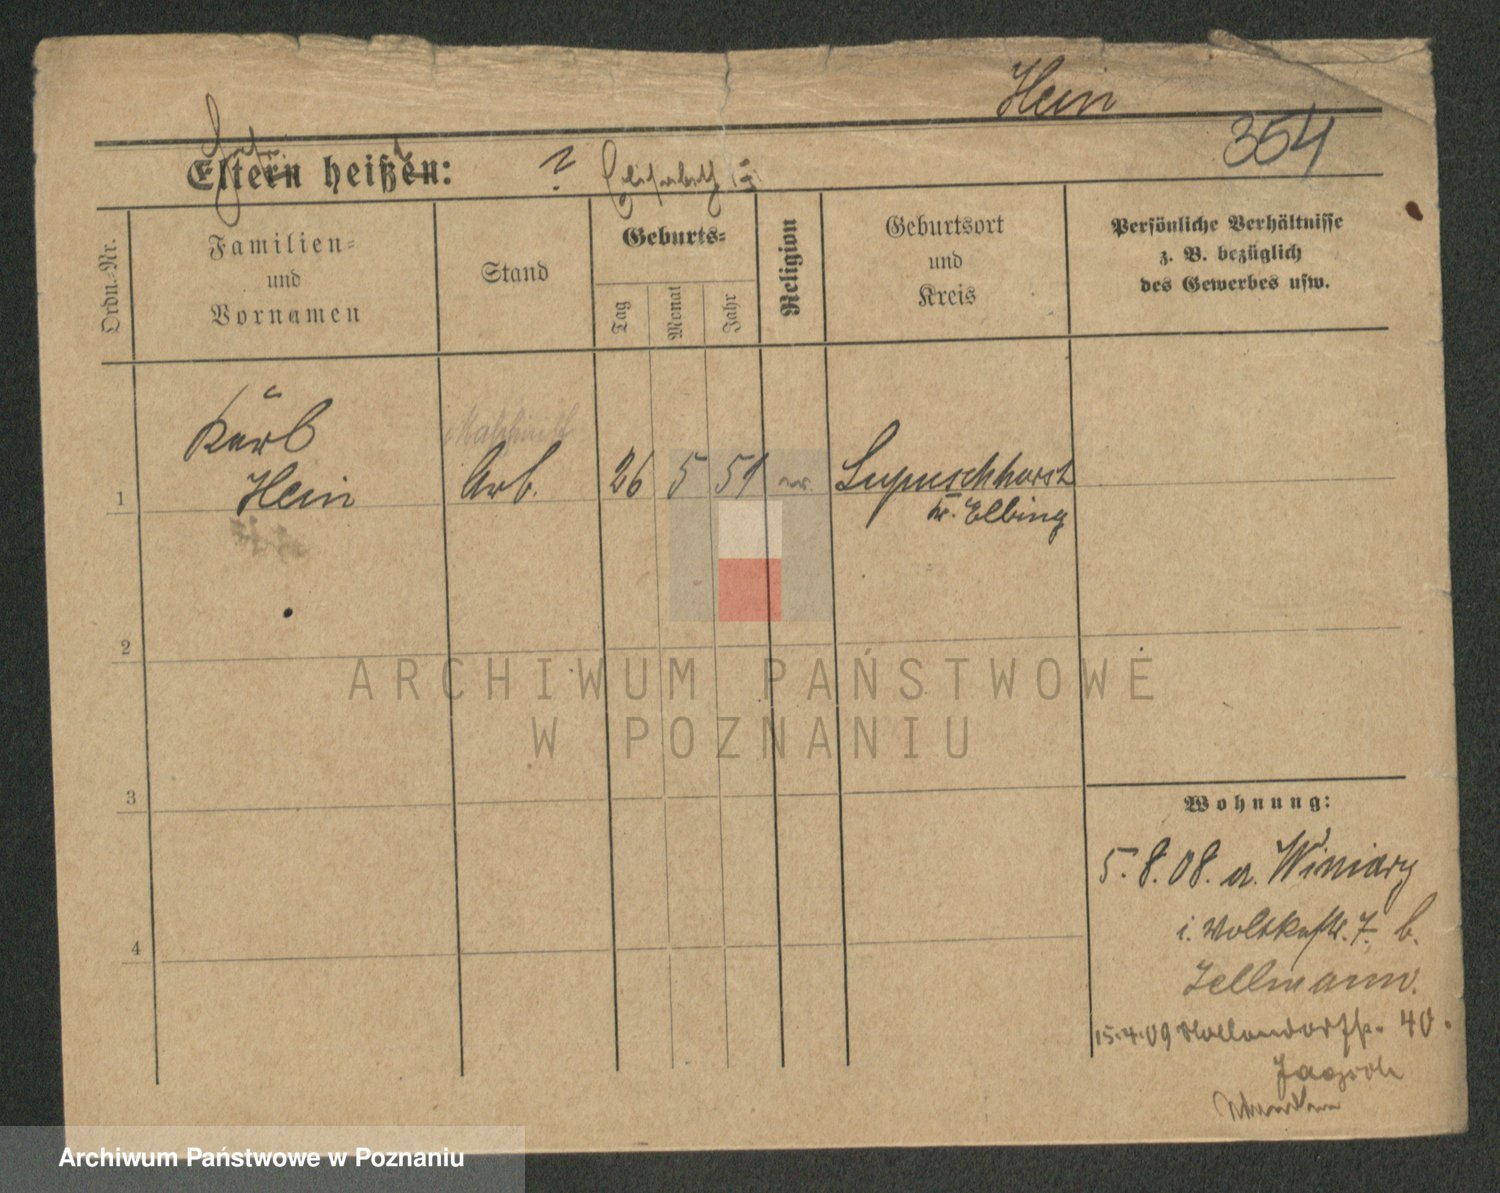 Hein
354
Eltern heißen: ? Elisabeth
Ordn.-Nr.
Familien-
und
Vornamen
Stand
Geburts-
Tag
Monat
Jahr
Religion
Geburtsort
und
Kreis
Persönliche Verhältnisse
z. B. bezüglich
des Gewerbes usw.
Karl
1 Hein Arb. 26 5 51 Lupuschhorst
Kr. Elbing
2
ARCHIWUM PAŃSTWOWE
W POZNANIU
3
Wohnung:
5.8.08. a. Winiary
i. 7. b.
4
Zellmann.
15.4.09 40.
Archiwum Państwowe w Poznaniu